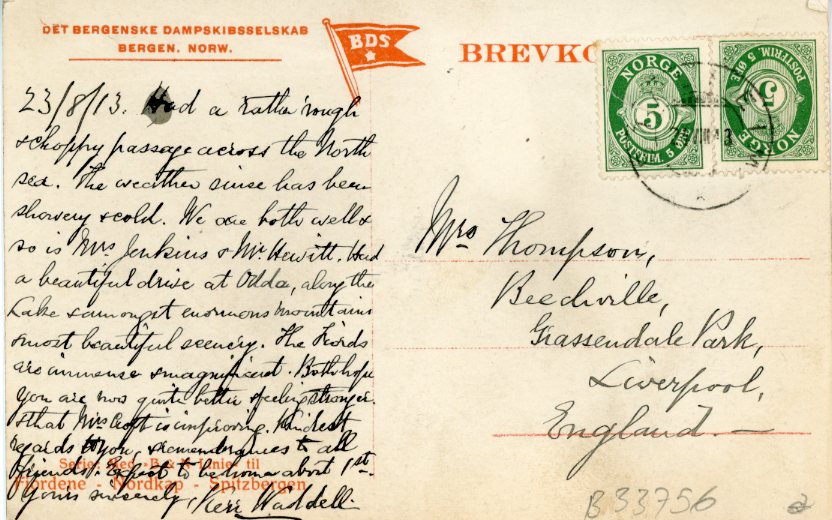 DET BERGENSKE DAMPSKIBSSELSKAB
BERGEN. NORW.
BDS
BREVKO
NORGE
5
POSTFRIM. 5 ØRE
NORGE
5
POSTFRIM. 5 ØRE
23/8/13. Had a rather rough
& choppy passage across the North
sea. The weather sinse has been
showery & cold. We are both well &
so is Mrs Jenkins & Mr Hewitt. Had
a beautiful drive at Odda, along the
Lake & amongst enormous mountains
& most beautiful scenery. The Fiords
are immense & magnificent. Both hope
you are now quite better & feeling stronger.
& that Mrs Croft is improving. Kindest
regards to you, & remembrances to all
friends. Expect to be home about 1st
Yours sincerely, Kerr Waddell.
Serie: Med B & N Linie til
Fjordene - Nordkap - Spitzbergen
Mrs Thompson,
Beechville,
Grassendale Park,
Liverpool,
England. —
B33756